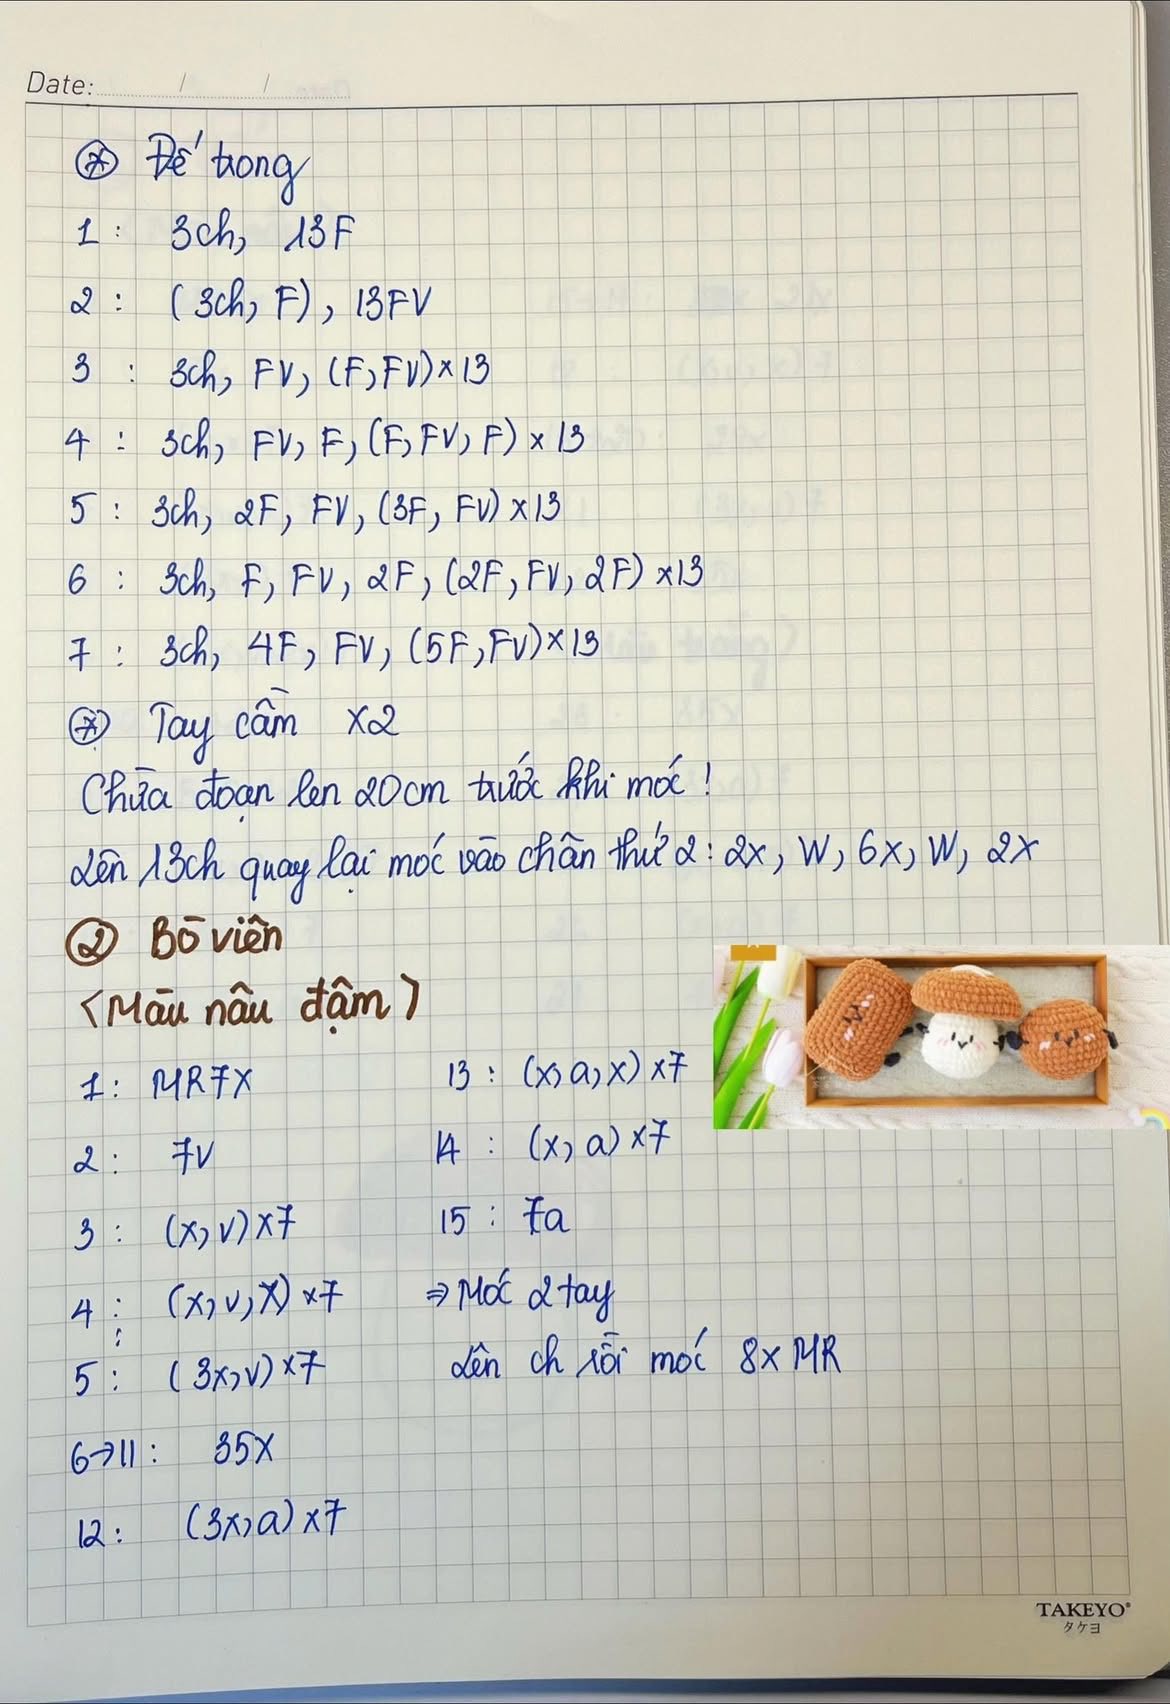 Date: / /
⊛ Đế trong
1: 3ch, 13F
2: (3ch, F), 13FV
3: 3ch, FV, (F, FV)x13
4: 3ch, FV, F, (F, FV, F) x13
5: 3ch, 2F, FV, (3F, FV) x13
6: 3ch, F, FV, 2F, (2F, FV, 2F) x13
7: 3ch, 4F, FV, (5F, FV)x13
⊛ Tay cầm x2
Chừa đoạn len 20cm trước khi móc!
Lên 13ch quay lại móc vào chân thứ 2: 2x, W, 6x, W, 2x
② Bò viên
(Màu nâu đậm)
1: MR7X
2: 7V
3: (x, v)x7
4: (x, v, x) x7
5: (3x, v) x7
6→11: 35X
12: (3x, a) x7
13: (x, a, x) x7
14: (x, a) x7
15: 7a
⇒ Móc 2 tay
Lên ch rồi móc 8x MR
TAKEYO®
タケヨ